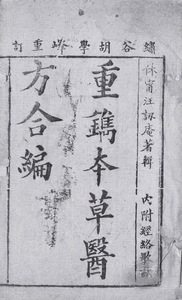 繡谷胡學峰重訂
休甯汪訒庵著輯
重鐫本草醫
方合編
內附經絡歌訣